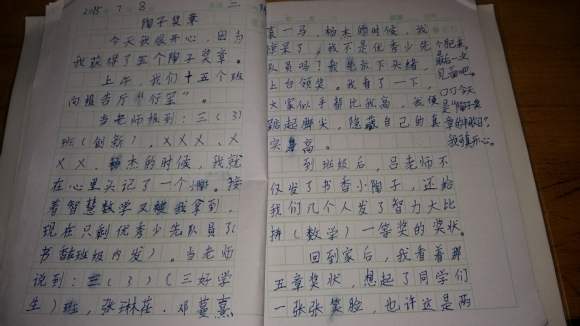 2015 7 8 二
陶子奖章
今天我很开心，因为
我获得了五个陶子奖章。
上午，我们十五个班
向报告厅“行军”。
当老师报到：三（3）
班（创新），×××、×
××，杨杰的时候，我就
在心里头记了一个小。接
着智慧数学又被我拿到，
现在只剩优秀少先队员了（
书香班级内发）。当老师
说到：三（3）（三好学
生）班，张琳茌．邓蔓熹
袁一马，杨杰的时候，我
惊呆了，我不是优秀少先
队员吗？我毫杀下头绪，
上台领奖。我看了一下，
大家似乎都比我高，我便
踮起脚尖，隐藏自己的真
实身高。
到班级后，吕老师不
仅发了书香小陶子，还给
我们几个人发了智力大比
拼（数学）一等奖的奖状。
回到家后，我看着那
五章奖状，想起了同学们
一张张笑脸，也许这是两
个肥来，
最后一次
见面吧。
今天
是“陶子奖
章的丰收日”，
我真开心。